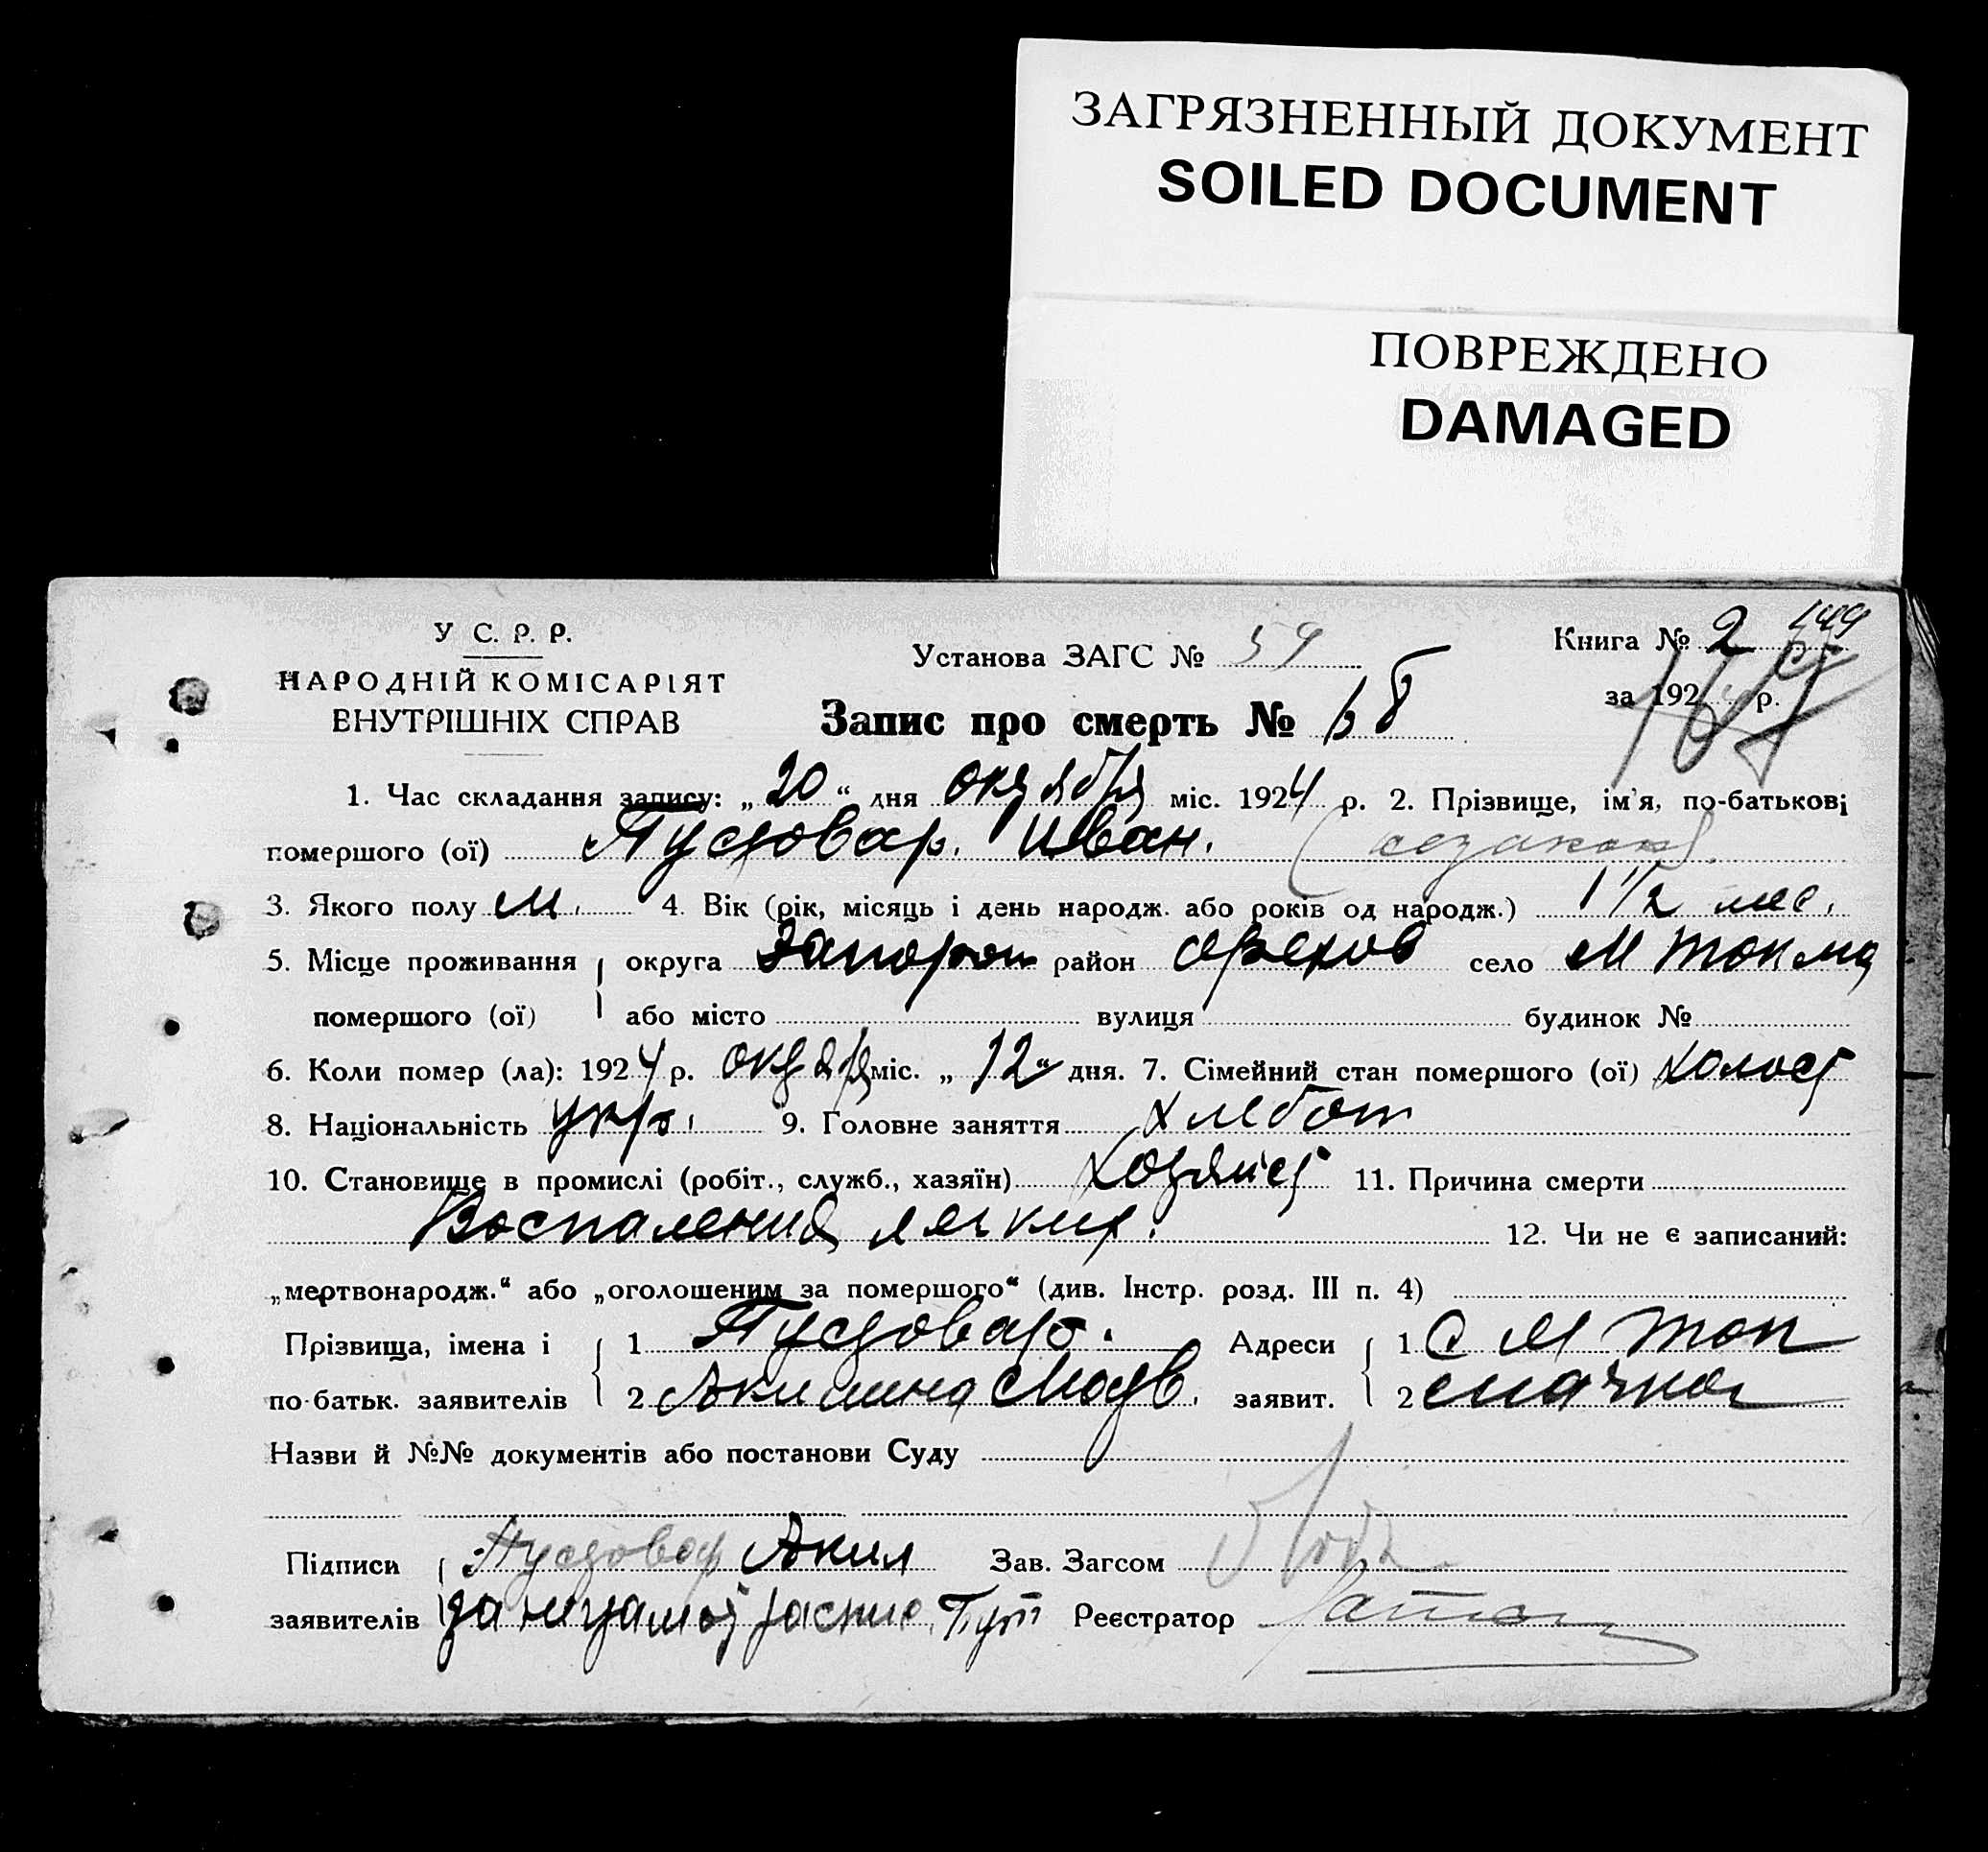 ЗАГРЯЗНЕННЫЙ ДОКУМЕНТ
SOILED DOCUMENT
ПОВРЕЖДЕНО
DAMAGED
У С. Р. Р.
НАРОДНІЙ КОМІСАРІЯТ
ВНУТРІШНІХ СПРАВ
Установа ЗАГС № 59
Книга № 2 149
за 192 р.
Запис про смерть № 68
1. Час складання запису: „20“ дня октября міс. 1924 р. 2. Прізвище, ім'я, по-батькові
помершого (ої) Пустовар. Иван.
3. Якого полу м. 4. Вік (рік, місяць і день народж. або років од народж.) 1 1/2 мес.
5. Місце проживання округа Запорож район Орехов село М Токма
помершого (ої) або місто вулиця будинок №
6. Коли помер (ла): 1924 р. октября міс. „12“ дня. 7. Сімейний стан помершого (ої) холост
8. Національність укр. 9. Головне заняття хлебоп
10. Становище в промислі (робіт., служб., хазяїн) 11. Причина смерти
Воспаления легких. 12. Чи не є записаний:
„мертвонародж.“ або „оголошеним за помершого“ (див. Інстр. розд. III п. 4)
Прізвища, імена і 1 Пустовар. Адреси 1 С М Ток
по-батьк. заявителів 2 Акилина заявит. 2 мачка
Назви й №№ документів або постанови Суду
Підписи Пустовар Акил Зав. Загсом
заявителів Реєстратор